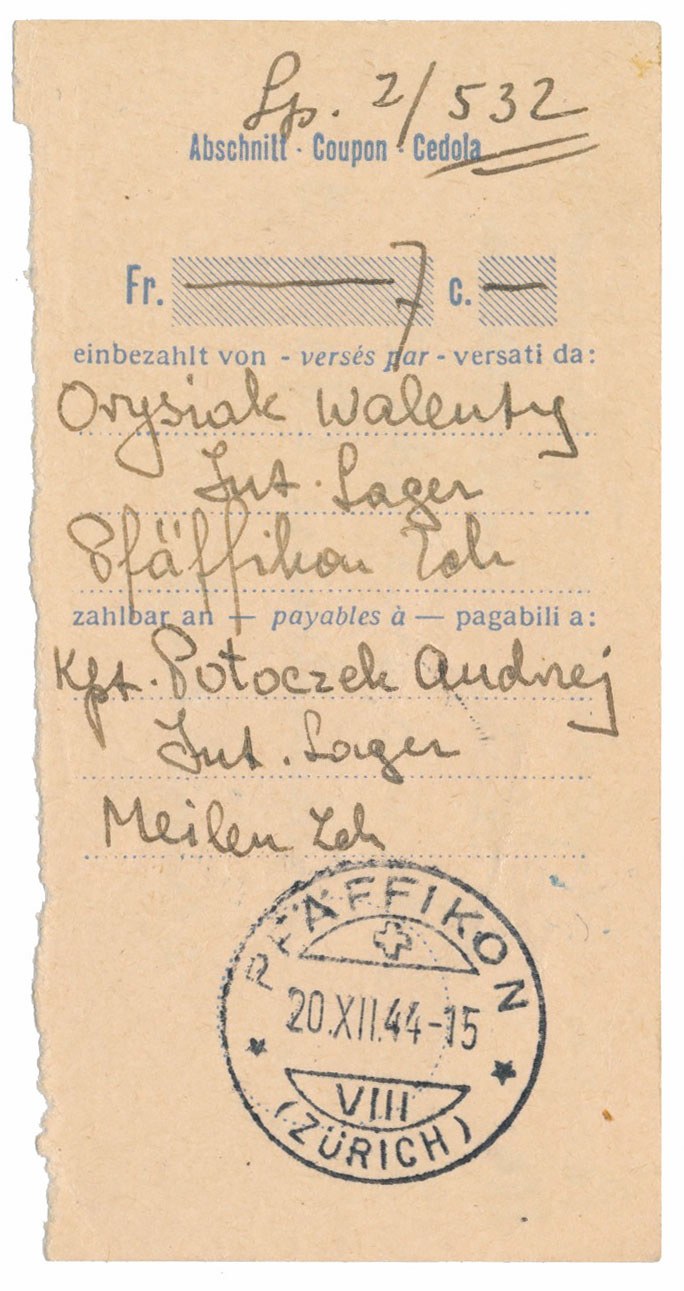 Lp. 2/532
Abschnitt · Coupon · Cedola
Fr. — 7 c. —
einbezahlt von - versés par - versati da:
Orysiak Walenty
Int. Lager
Pfäffikon Zch
zahlbar an — payables à — pagabili a:
Kpt. Potoczek Andrzej
Int. Lager
Meilen Zch
PFÄFFIKON
20.XII.44-15
VIII
(ZÜRICH)